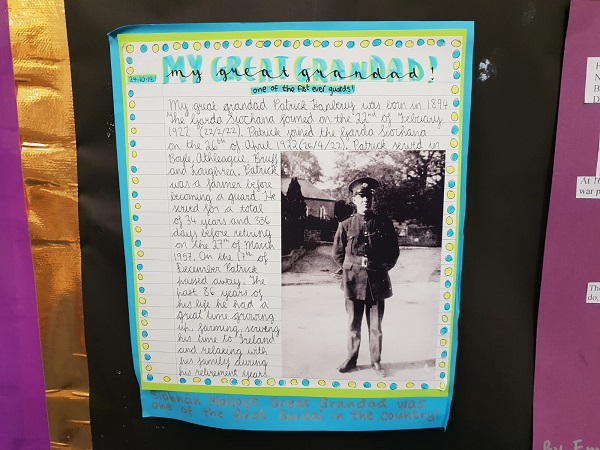 24-10-18
my great grandad!
one of the fist ever guards!
My great grandad Patrick Hanbruy was born in 1894
The Garda Siochana formed on the 22nd of February
1922 (22/2/22). Patrick joined the Garda Siochana
on the 26th of April 1922 (26/4/22). Patrick served in
Boyle, Athleague, Bruff
and Loughrea. Patrick
was a farmer before
becoming a guard. He
served for a total
of 34 years and 336
days before retiring
on the 27th of March
1957. On the 17th of
December Patrick
passed away. The
past 86 years of
his life he had a
great time growing
up, farming, serving
his time to Ireland
and relaxing with
his family during
his retirement years.
Siobhan Great Grandad was
one of the first Gardaí in the country!
At
war p
The
do,
By Em